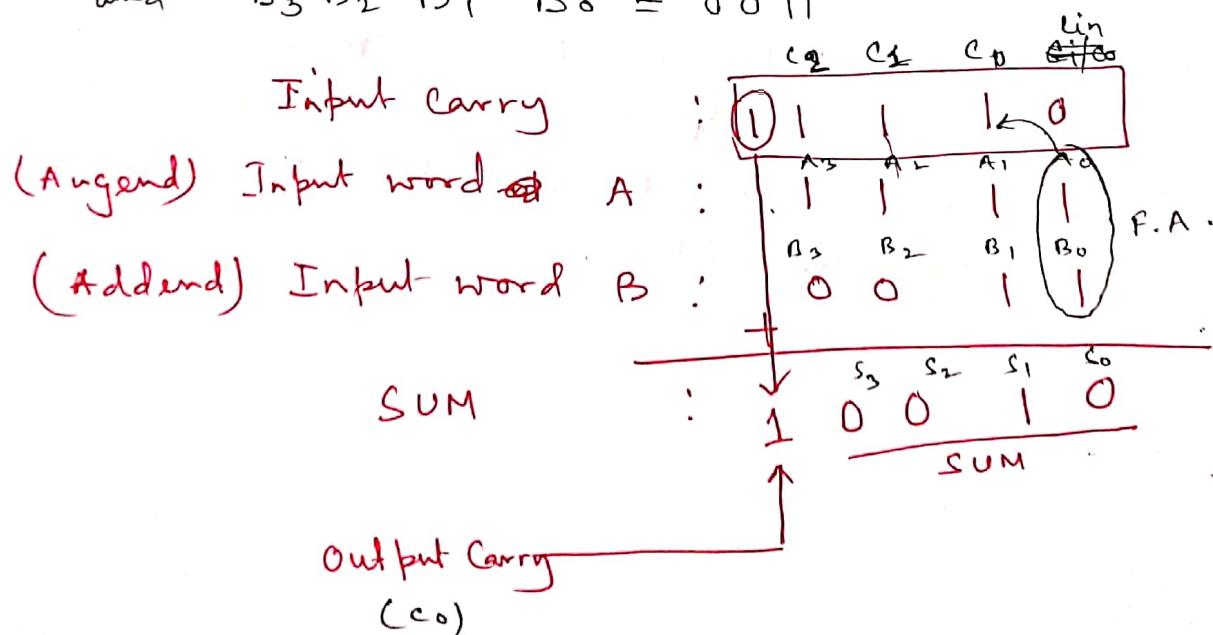 B3 B2 B1 B0 = 0011
Cin
C2 C1 C0
Input Carry : 1 1 1 1 0
A3 A2 A1 A0
(Augend) Input word A : 1 1 1 1
F.A.
B3 B2 B1 B0
(Addend) Input word B : 0 0 1 1
+
S3 S2 S1 S0
SUM : 1 0 0 1 0
SUM
Output Carry
(C0)